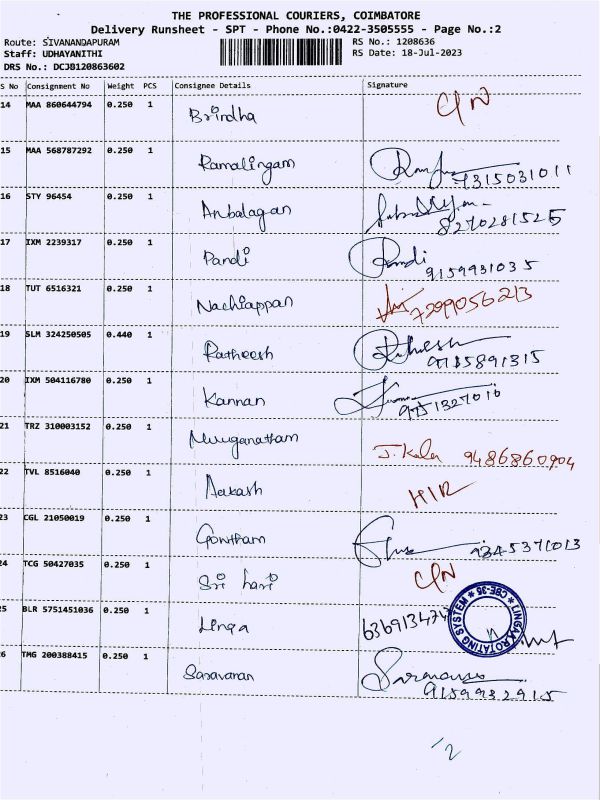 THE PROFESSIONAL COURIERS, COIMBATORE
Delivery Runsheet - SPT - Phone No.:0422-3505555 - Page No.:2
Route: SIVANANDAPURAM RS No.: 1208636
Staff: UDHAYANITHI RS Date: 18-Jul-2023
DRS No.: DCJB120863602
S No Consignment No Weight PCS Consignee Details Signature
14 MAA 860644794 0.250 1 Brindha
15 MAA 568787292 0.250 1 Ramalingam 7315031011
16 STY 96454 0.250 1 Anbalagan 8270281525
17 IXM 2239317 0.250 1 Pandi Pandi 9159931035
18 TUT 6516321 0.250 1 Nachiappan 7299056213
19 SLM 324250505 0.440 1 Ratheesh
20 IXM 504116780 0.250 1 Kannan
21 TRZ 310003152 0.250 1 Muruganatham J.Kala 9486860904
22 TVL 8516040 0.250 1 Aakash
23 CGL 21050019 0.250 1 Gowtham 9345371013
24 TCG 50427035 0.250 1 Sri hari
25 BLR 5751451036 0.250 1 Linga LINGA ROTATING SYSTEM * CBE-35 *
26 TMG 200388415 0.250 1 Saravanan 9159932915